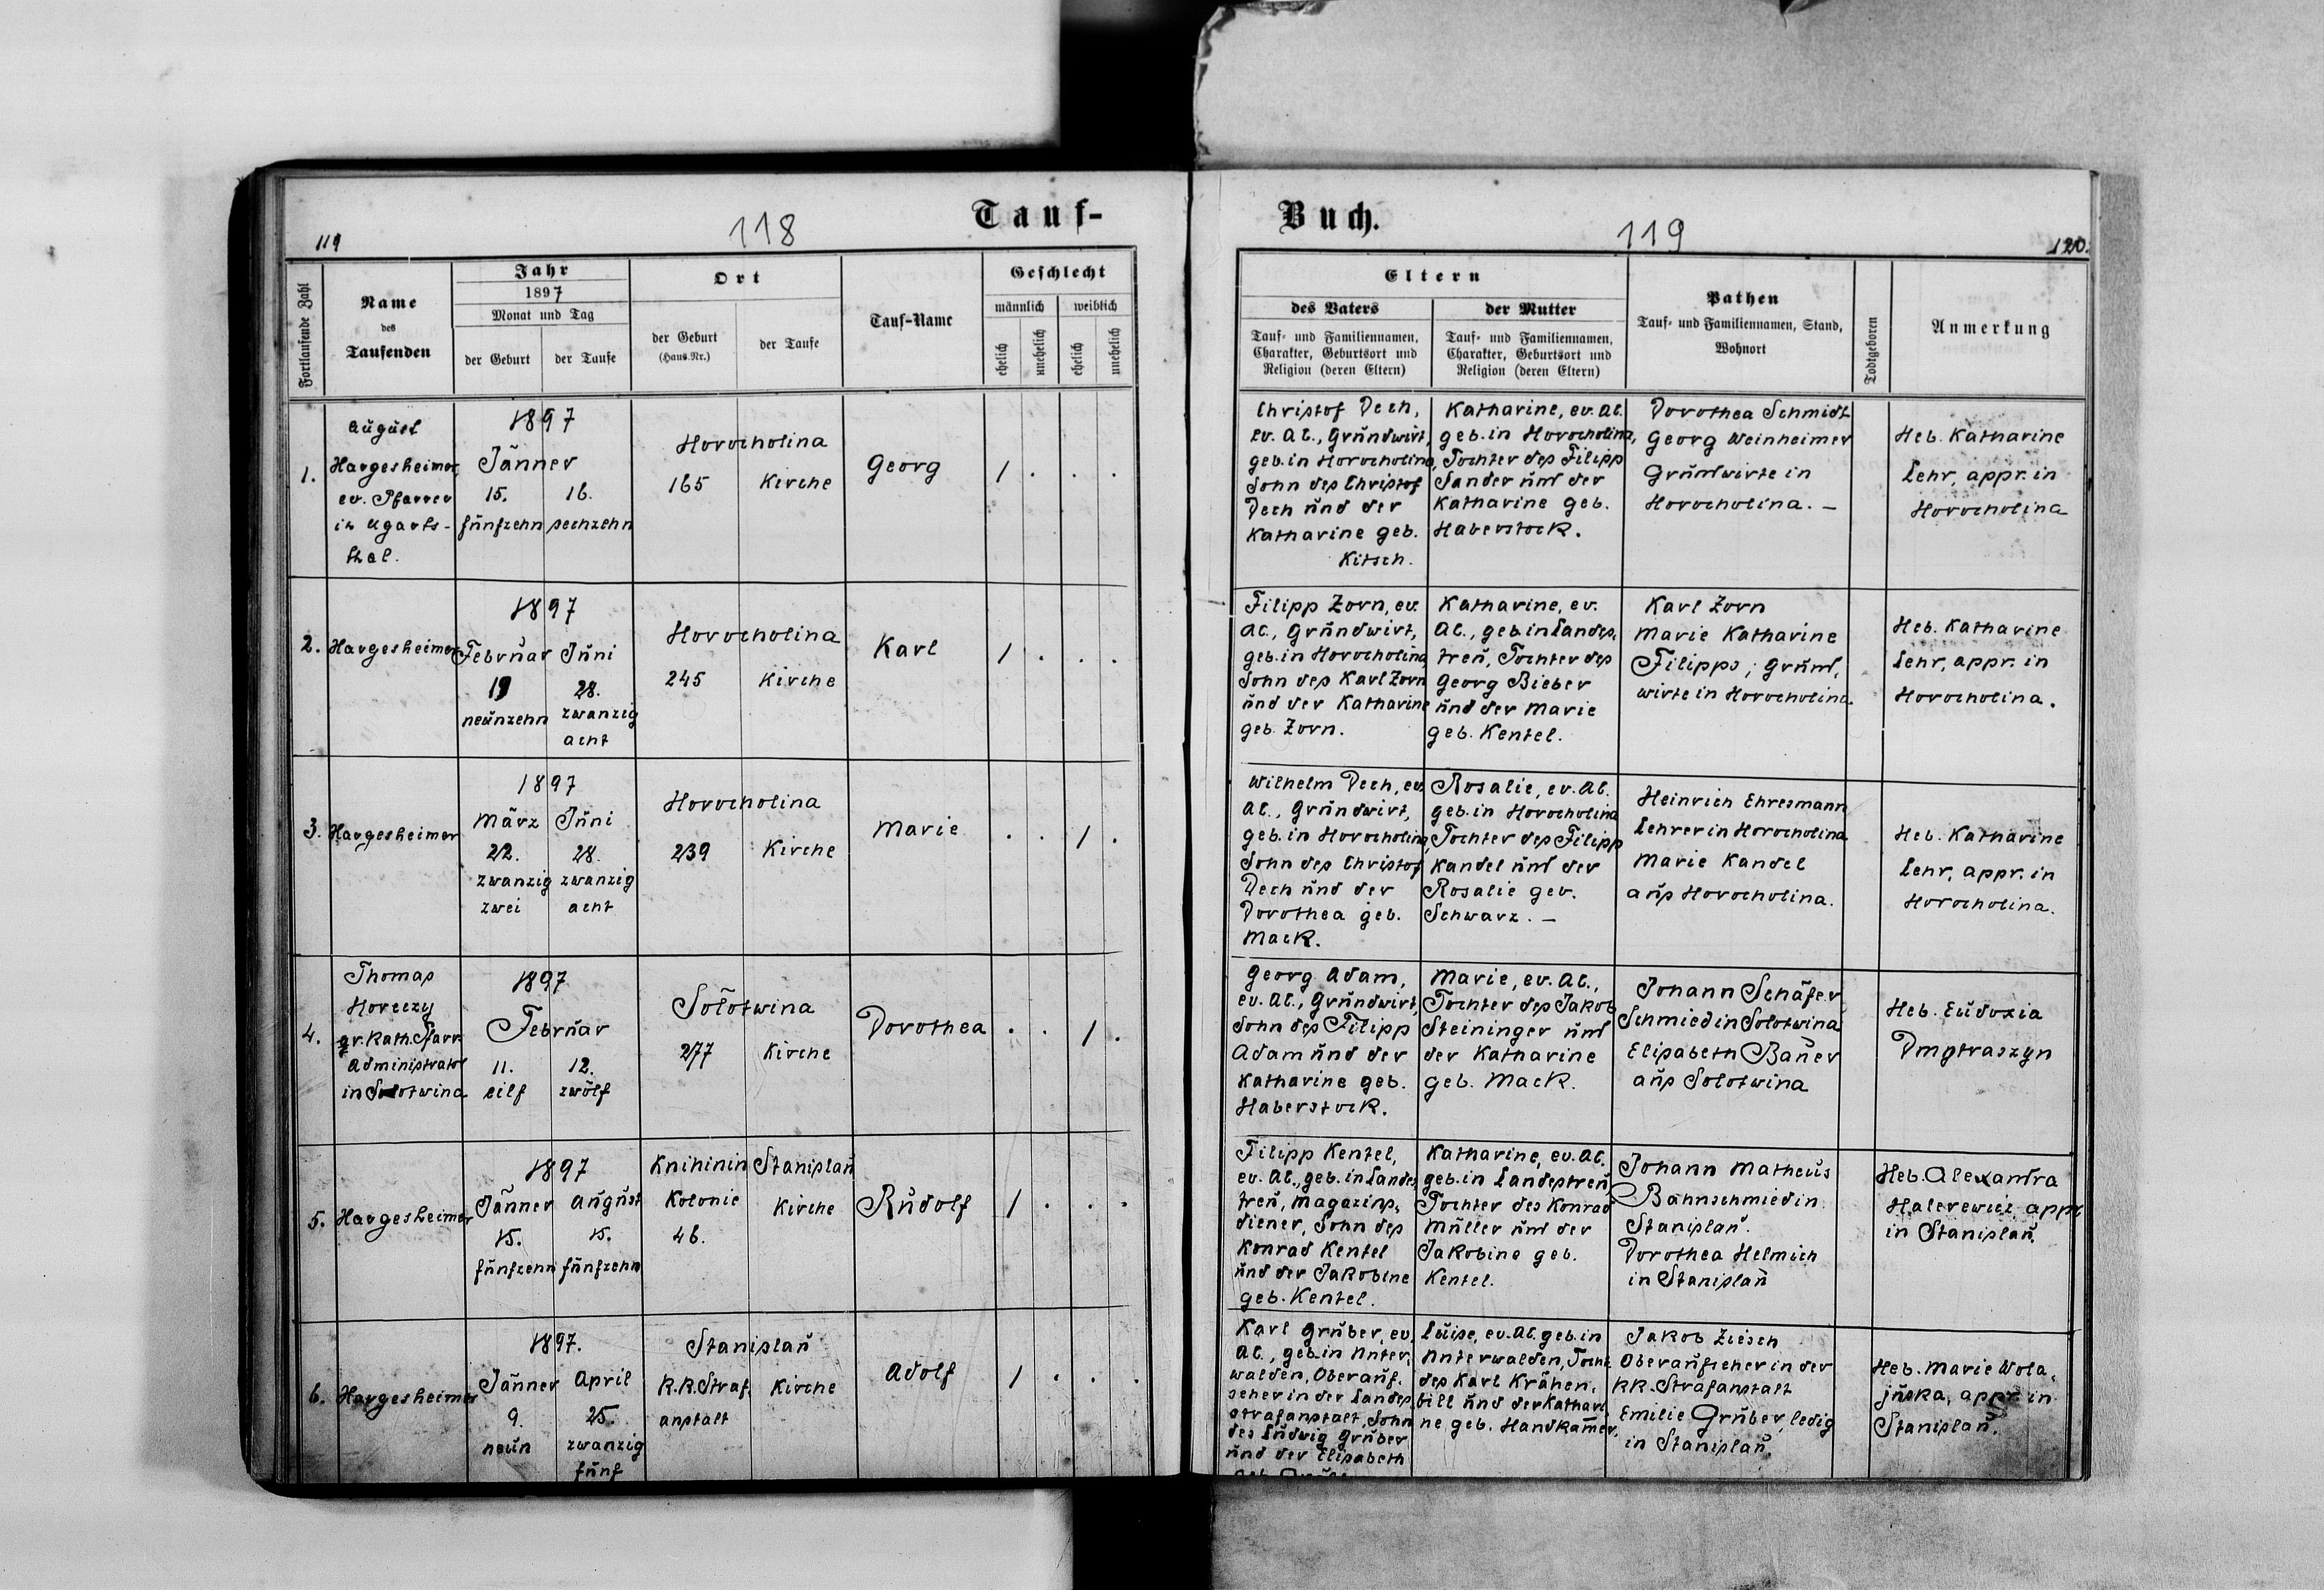 Tauf-
Buch.
118
119
119
120.
Fortlaufende Zahl
Name
des
Taufenden
Jahr
1897
Monat und Tag
der Geburt
der Taufe
Ort
der Geburt
(Haus.Nr.)
der Taufe
Tauf-Name
Geschlecht
männlich
weiblich
ehelich
unehelich
ehelich
unehelich
Eltern
des Vaters
Tauf- und Familiennamen,
Charakter, Geburtsort und
Religion (deren Eltern)
der Mutter
Tauf- und Familiennamen,
Charakter, Geburtsort und
Religion (deren Eltern)
Pathen
Tauf- und Familiennamen, Stand,
Wohnort
Todtgeboren
Anmerkung
1.
August
Hargesheimer,
ev. Pfarrer
in Ugarts-
thal.
1897
Jänner
15. 16.
fünfzehn sechzehn
Horocholina
165 Kirche
Georg
1 . . .
Christof Dech,
ev. AC., Grundwirt,
geb. in Horocholina,
Sohn des Christof
Dech und der
Katharine geb.
Kitsch.
Katharine, ev. AC.
geb. in Horocholina,
Tochter des Filipp
Sander und der
Katharine geb.
Haberstock.
Dorothea Schmidt
Georg Weinheimer
Grundwirte in
Horocholina. —
Heb. Katharine
Lehr, appr. in
Horocholina
2.
Hargesheimer
1897
Februar Juni
19 28.
neunzehn zwanzig
acht
Horocholina
245 Kirche
Karl
1 . . .
Filipp Zorn, ev.
AC., Grundwirt,
geb. in Horocholina
Sohn des Karl Zorn
und der Katharine
geb. Zorn.
Katharine, ev.
AC., geb. in Landes,
treu, Tochter des
Georg Bieber
und der Marie
geb. Kentel.
Karl Zorn
Marie Katharine
Filipps, Grund,
wirte in Horocholina.
Heb. Katharine
Lehr, appr. in
Horocholina.
3.
Hargesheimer
1897
März Juni
22. 28.
zwanzig zwanzig
zwei acht
Horocholina
239 Kirche
Marie
. . 1 .
Wilhelm Dech, ev.
AC., Grundwirt,
geb. in Horocholina,
Sohn des Christof
Dech und der
Dorothea geb.
Mack.
Rosalie, ev. AC.
geb. in Horocholina
Tochter des Filipp
Kandel und der
Rosalie geb.
Schwarz. —
Heinrich Ehresmann
Lehrer in Horocholina
Marie Kandel
aus Horocholina.
Heb. Katharine
Lehr, appr. in
Horocholina.
4.
Thomas
Horeczy
gr. Kath. Pfarr
Administrator
in Solotwina
1897
Februar
11. 12.
eilf zwölf
Solotwina
277 Kirche
Dorothea
. . 1 .
Georg Adam,
ev. AC., Grundwirt,
Sohn des Filipp
Adam und der
Katharine geb.
Haberstock.
Marie, ev. AC.,
Tochter des Jakob
Steininger und
der Katharine
geb. Mack.
Johann Schäfer
Schmied in Solotwina
Elisabeth Bauer
aus Solotwina
Heb. Eudoxia
Dmytraszyn
5.
Hargesheimer
1897
Jänner August
15. 15.
fünfzehn fünfzehn
Knihinin Stanislau
Kolonie Kirche
46.
Rudolf
1 . . .
Filipp Kentel,
ev. AC., geb. in Landes,
treu, Magazins,
diener, Sohn des
Konrad Kentel
und der Jakobine
geb. Kentel.
Katharine, ev. AC.
geb. in Landestreu,
Tochter des Konrad
Müller und der
Jakobine geb.
Kentel.
Johann Matheus
Bahnschmied in
Stanislau.
Dorothea Helmich
in Stanislau
Heb. Alexandra
Halerewicz, appr.
in Stanislau.
6.
Hargesheimer
1897.
Jänner April
9. 25.
neun zwanzig
fünf
Stanislau
K.K. Straf, Kirche
anstalt
Adolf
1 . . .
Karl Gruber, ev.
AC., geb. in Unter,
walden, Oberauf,
seher in der Landes,
strafanstalt, Sohn
des Ludwig Gruber
und der Elisabeth
Luise, ev. AC. geb. in
Unterwalden, Tocht.
des Karl Krähen,
bill und der Kathari
ne geb. Handkamer.
Jakob Ziesch
Oberaufseher in der
KK. Strafanstalt
Emilie Gruber, ledig
in Stanislau.
Heb. Marie Wola,
juska, appr. in
Stanislau.